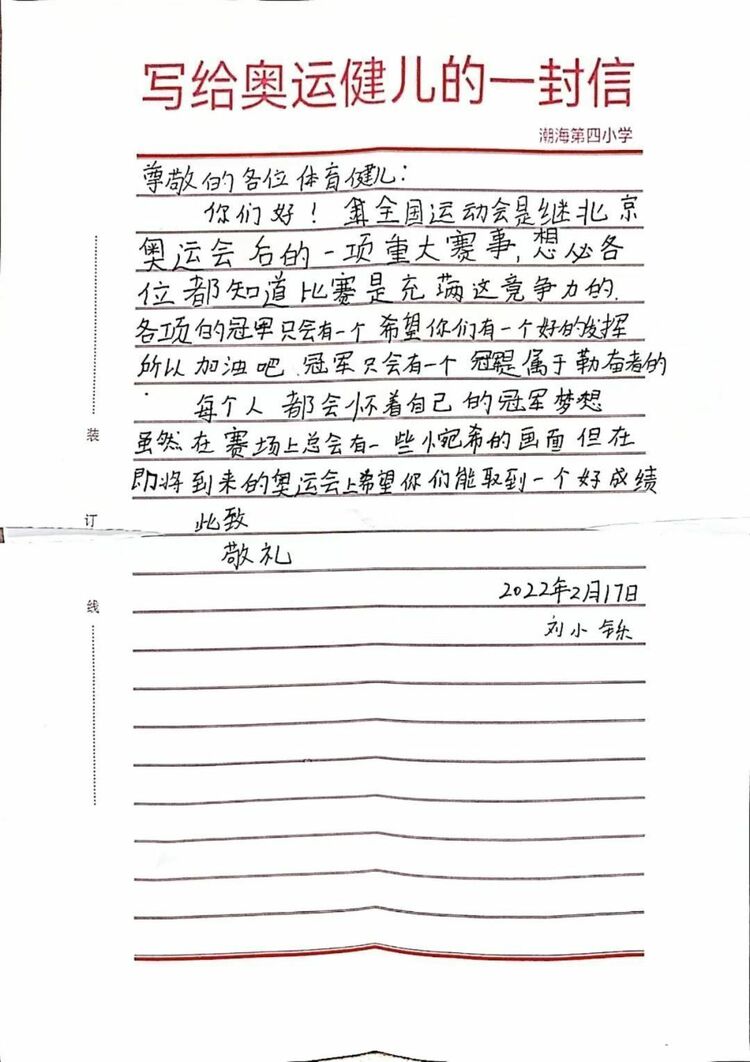 写给奥运健儿的一封信
潮海第四小学
尊敬的各位体育健儿：
你们好！ 全国运动会是继北京
奥运会后的一项重大赛事，想必各
位都知道比赛是充满这竞争力的.
各项的冠军只会有一个 希望你们有一个好的发挥
所以加油吧.冠军只会有一个 属于勤奋者的
每个人都会怀着自己的冠军梦想
虽然在赛场上总会有一些小宛希的画面但在
即将到来的奥运会上希望你们能取到一个好成绩
此致
敬礼
2022年2月17日
刘小铄
装
订
线